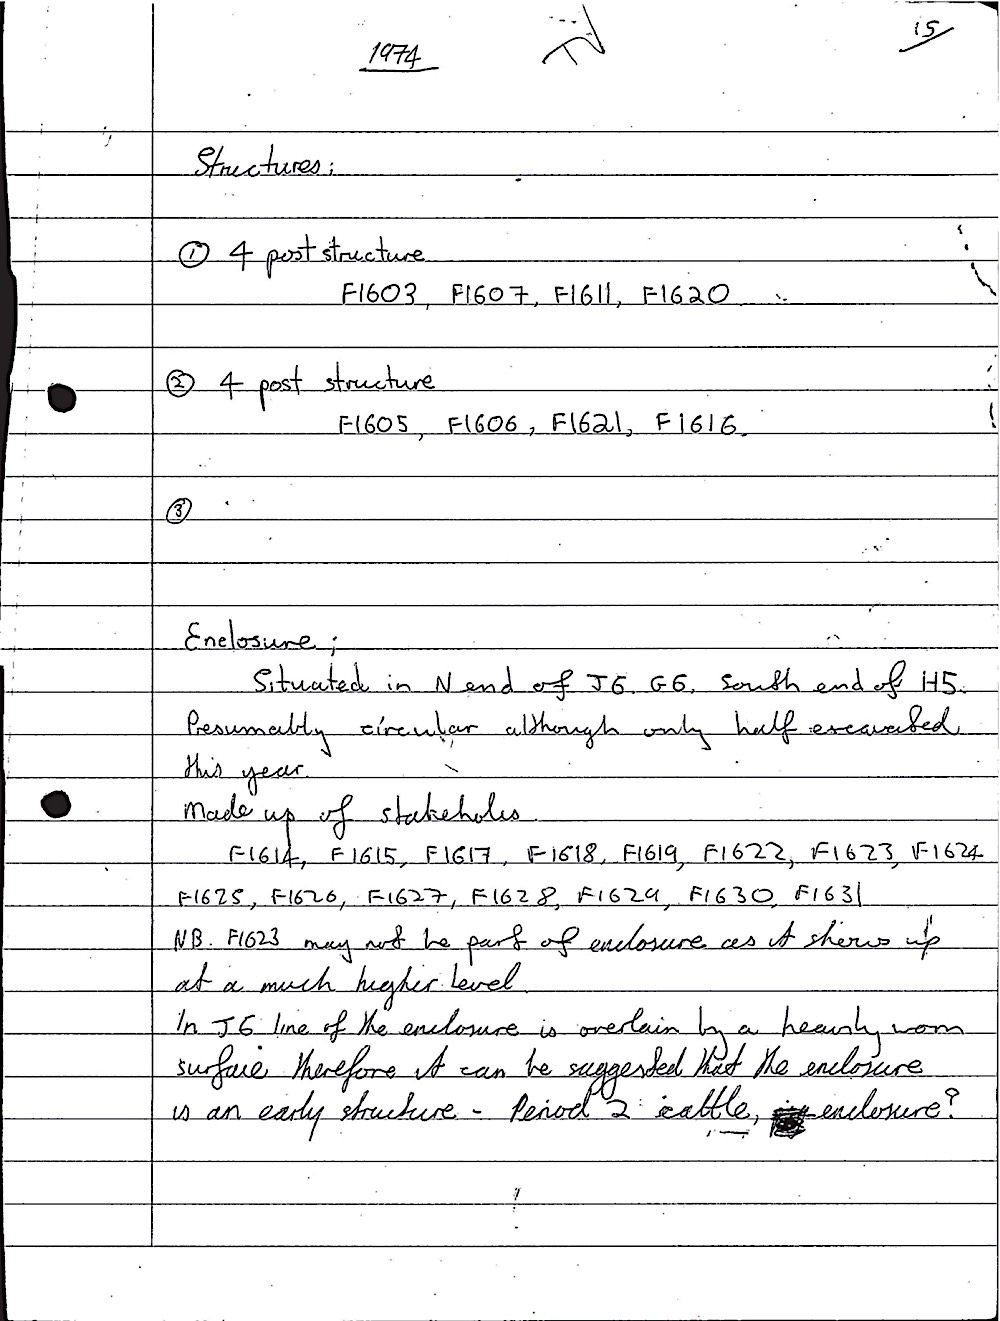 1974
15
Structures;
① 4 post structure
F1603, F1607, F1611, F1620
② 4 post structure
F1605, F1606, F1621, F1616.
③
Enclosure;
Situated in N end of J6. G6. South end of H5.
Presumably circular although only half excavated
this year.
Made up of stakeholes
F1614, F1615, F1617, F1618, F1619, F1622, F1623, F1624
F1625, F1626, F1627, F1628, F1629, F1630, F1631
NB. F1623 may not be part of enclosure as it shows up
at a much higher level
In J6 line of the enclosure is overlain by a heavily worn
surface therefore it can be suggested that the enclosure
is an early structure - Period 2 cattle, enclosure?